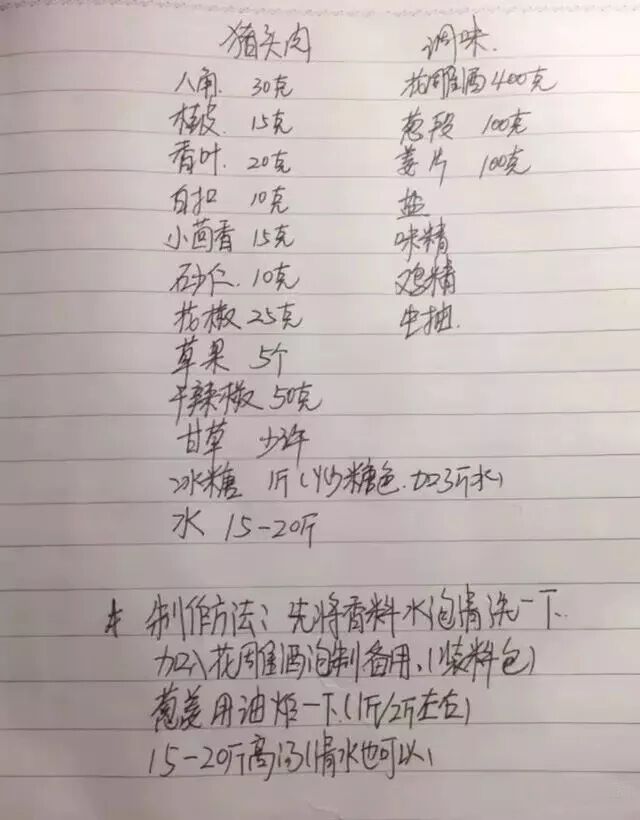 猪头肉 调味.
八角. 30克 花雕酒400克
桂皮. 15克 葱段 100克
香叶. 20克 姜片 100克
白扣 10克 盐
小茴香 15克 味精
砂仁. 10克 鸡精
花椒 25克 生抽.
草果 5个
干辣椒 50克
甘草 少许
冰糖 1斤(炒糖色.加3斤水)
水 15-20斤
* 制作方法: 先将香料水泡清洗一下.
加入花雕酒泡制备用.(装料包)
葱姜用油炸一下.(1斤/2斤左右)
15-20斤高汤(清水也可以)